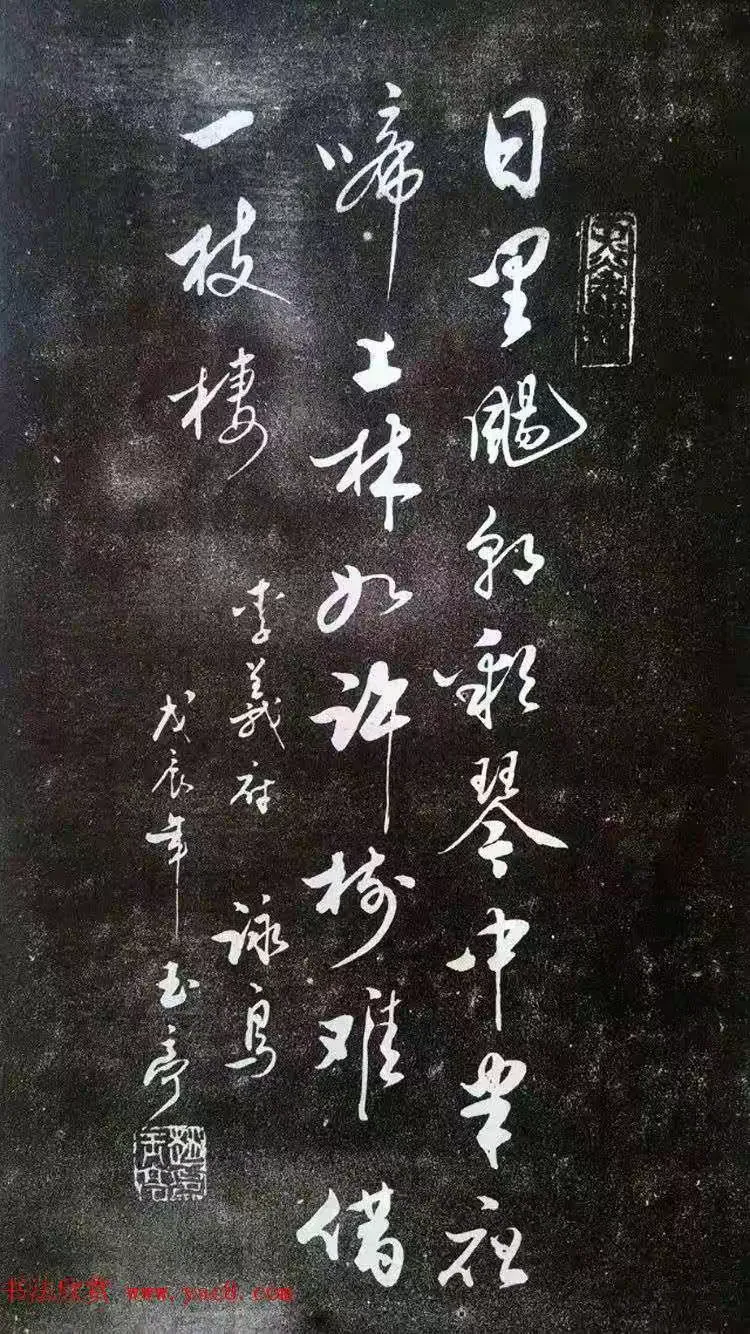 日里颺朝彩琴中半夜
啼上林如许树难借
一枝棲
李義府 詠烏
戊辰年玉亭
书法欣赏 www.yac8.com